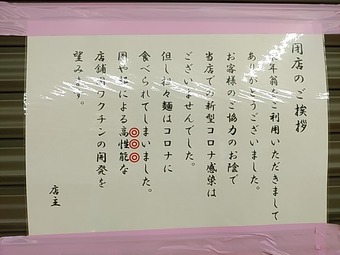 閉店のご挨拶
長年翁をご利用いただきまして
ありがとうございました。
お客様のご協力のお陰で
当店での新型コロナ感染は
ございませんでした。
但し我々麺はコロナに
食べられてしまいました。
国や都による高性能な
店舗用ワクチンの開発を
望みます。
店主